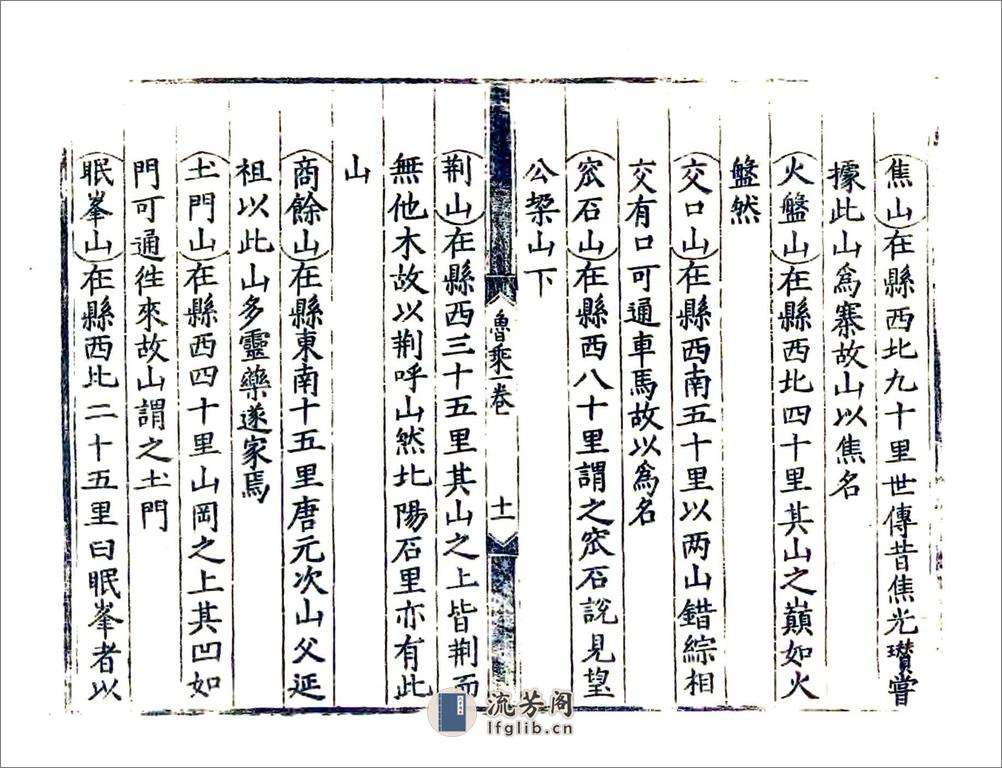 焦山在縣西北九十里世傳昔焦光瓚嘗
據此山爲寨故山以焦名
火盤山在縣西北四十里其山之巔如火
盤然
交口山在縣西南五十里以两山錯綜相
交有口可通車馬故以爲名
窋石山在縣西八十里謂之窋石說見望
公㟁山下
魯乘一卷
十一
荆山在縣西三十五里其山之上皆荆而
無他木故以荆呼山然北陽石里亦有此
山
商餘山在縣東南十五里唐元次山父延
祖以此山多靈藥遂家焉
土門山在縣西四十里山岡之上其凹如
門可通徃來故山謂之土門
眠峯山在縣西北二十五里曰眠峯者以
流芳阁
lfglib.cn